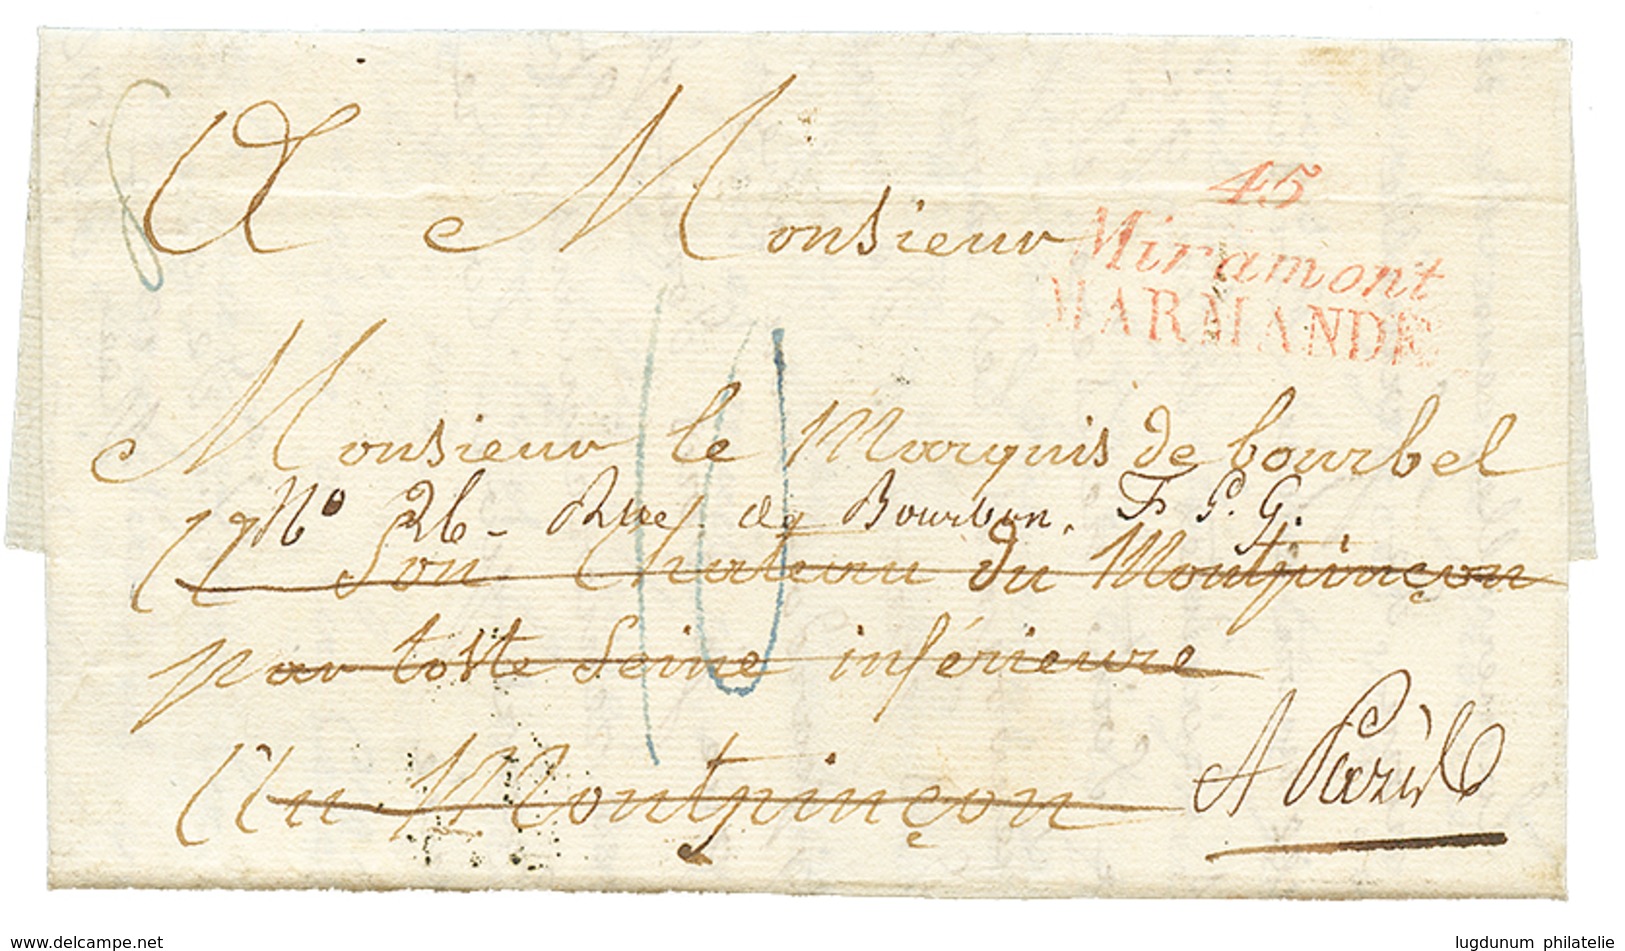 A Monsieur
45
Miramont
MARMANDE
Monsieur le Marquis de bourbel
N° 26 - Rue de Bourbon. F. S. G.
A Son Chateau du Montpinçon
par tostte Seine inférieure
Au Montpinçon
A Paris
10
delcampe.net
lugdunum philatelie